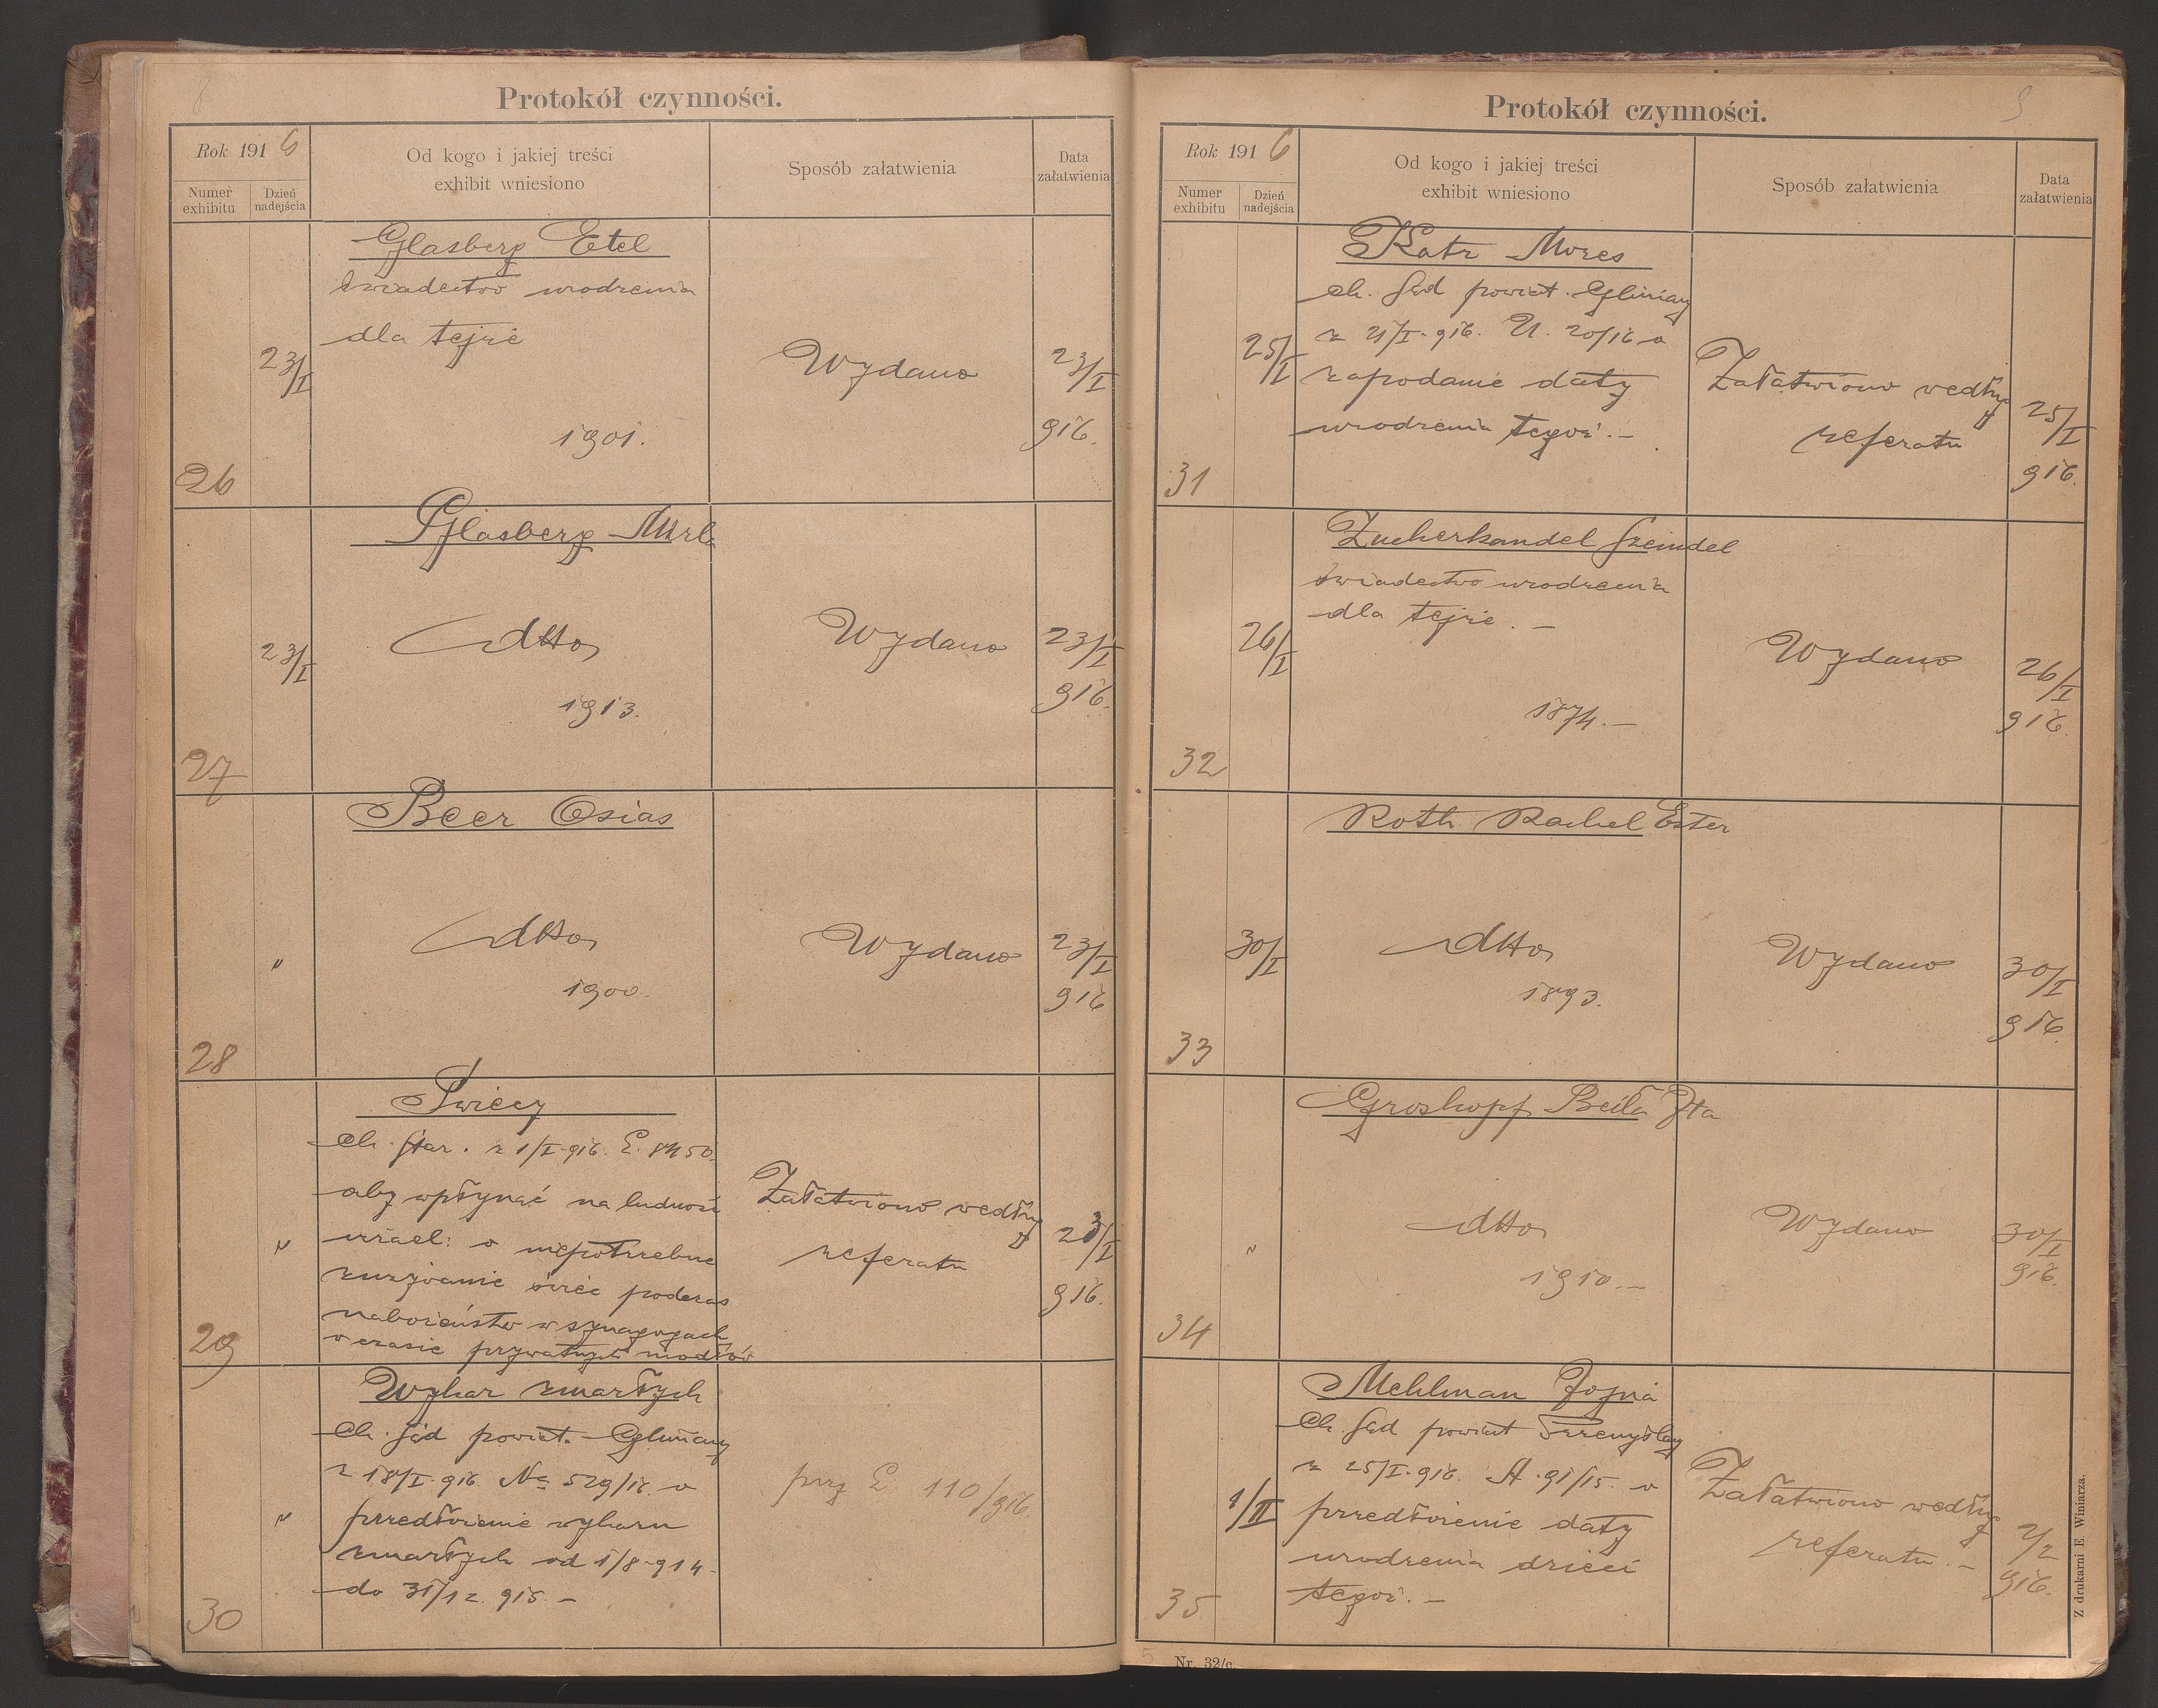 8
Protokół czynności.
Rok 1916
Numer exhibitu
Dzień nadejścia
Od kogo i jakiej treści
exhibit wniesiono
Sposób załatwienia
Data załatwienia
Glasberg Etel
świadectwo urodzenia
dla tejże
1901.
26
23/I
Wydano
23/I
916.
Glasberg Mirla
dtto
1913.
27
23/I
Wydano
23/I
916.
Beer Osias
dtto
1900.
28
"
Wydano
23/I
916
Świecy
Ck. Star. z 1/I. 916. L.
aby wpłynąć na ludność
izrael: o niepotrzebne
zużywanie świec podczas
nabożeństw w synagogach
w czasie prywatnych modłów
29
"
Załatwiono według
referatu
23/I
916.
Wykaz zmarłych
Ck. Sąd powiat. Gliniany
z 18/I. 916. Nc 529/16. o
przedłożenie wykazu
zmarłych od 1/8 914
do 31/12. 915. –
30
"
przy L. 110/916.
9
Protokół czynności.
Rok 1916
Numer exhibitu
Dzień nadejścia
Od kogo i jakiej treści
exhibit wniesiono
Sposób załatwienia
Data załatwienia
Katz Mozes
Ck. Sąd powiat. Gliniany
z 21/I. 916. U. 20/16 o
zapodanie daty
urodzenia tegoż. –
31
25/I
Załatwiono według
referatu
25/I
916.
Zucherkandel Szeindel
świadectwo urodzenia
dla tejże. –
1874. –
32
26/I
Wydano
26/I
916.
Roth Rachel Ester
dtto
1893.
33
30/I
Wydano
30/I
916.
Groskopf Beila Jta
dtto
1910. –
34
"
Wydano
30/I
916.
Mehlman Jojna
Ck. Sąd powiat Przemyślany
z 25/I. 916. A. 91/15. o
przedłożenie daty
urodzenia dzieci
tegoż. –
35
1/II
Załatwiono według
referatu. –
2/2
916.
Z drukarni E. Winiarza.
5
Nr. 32/c.